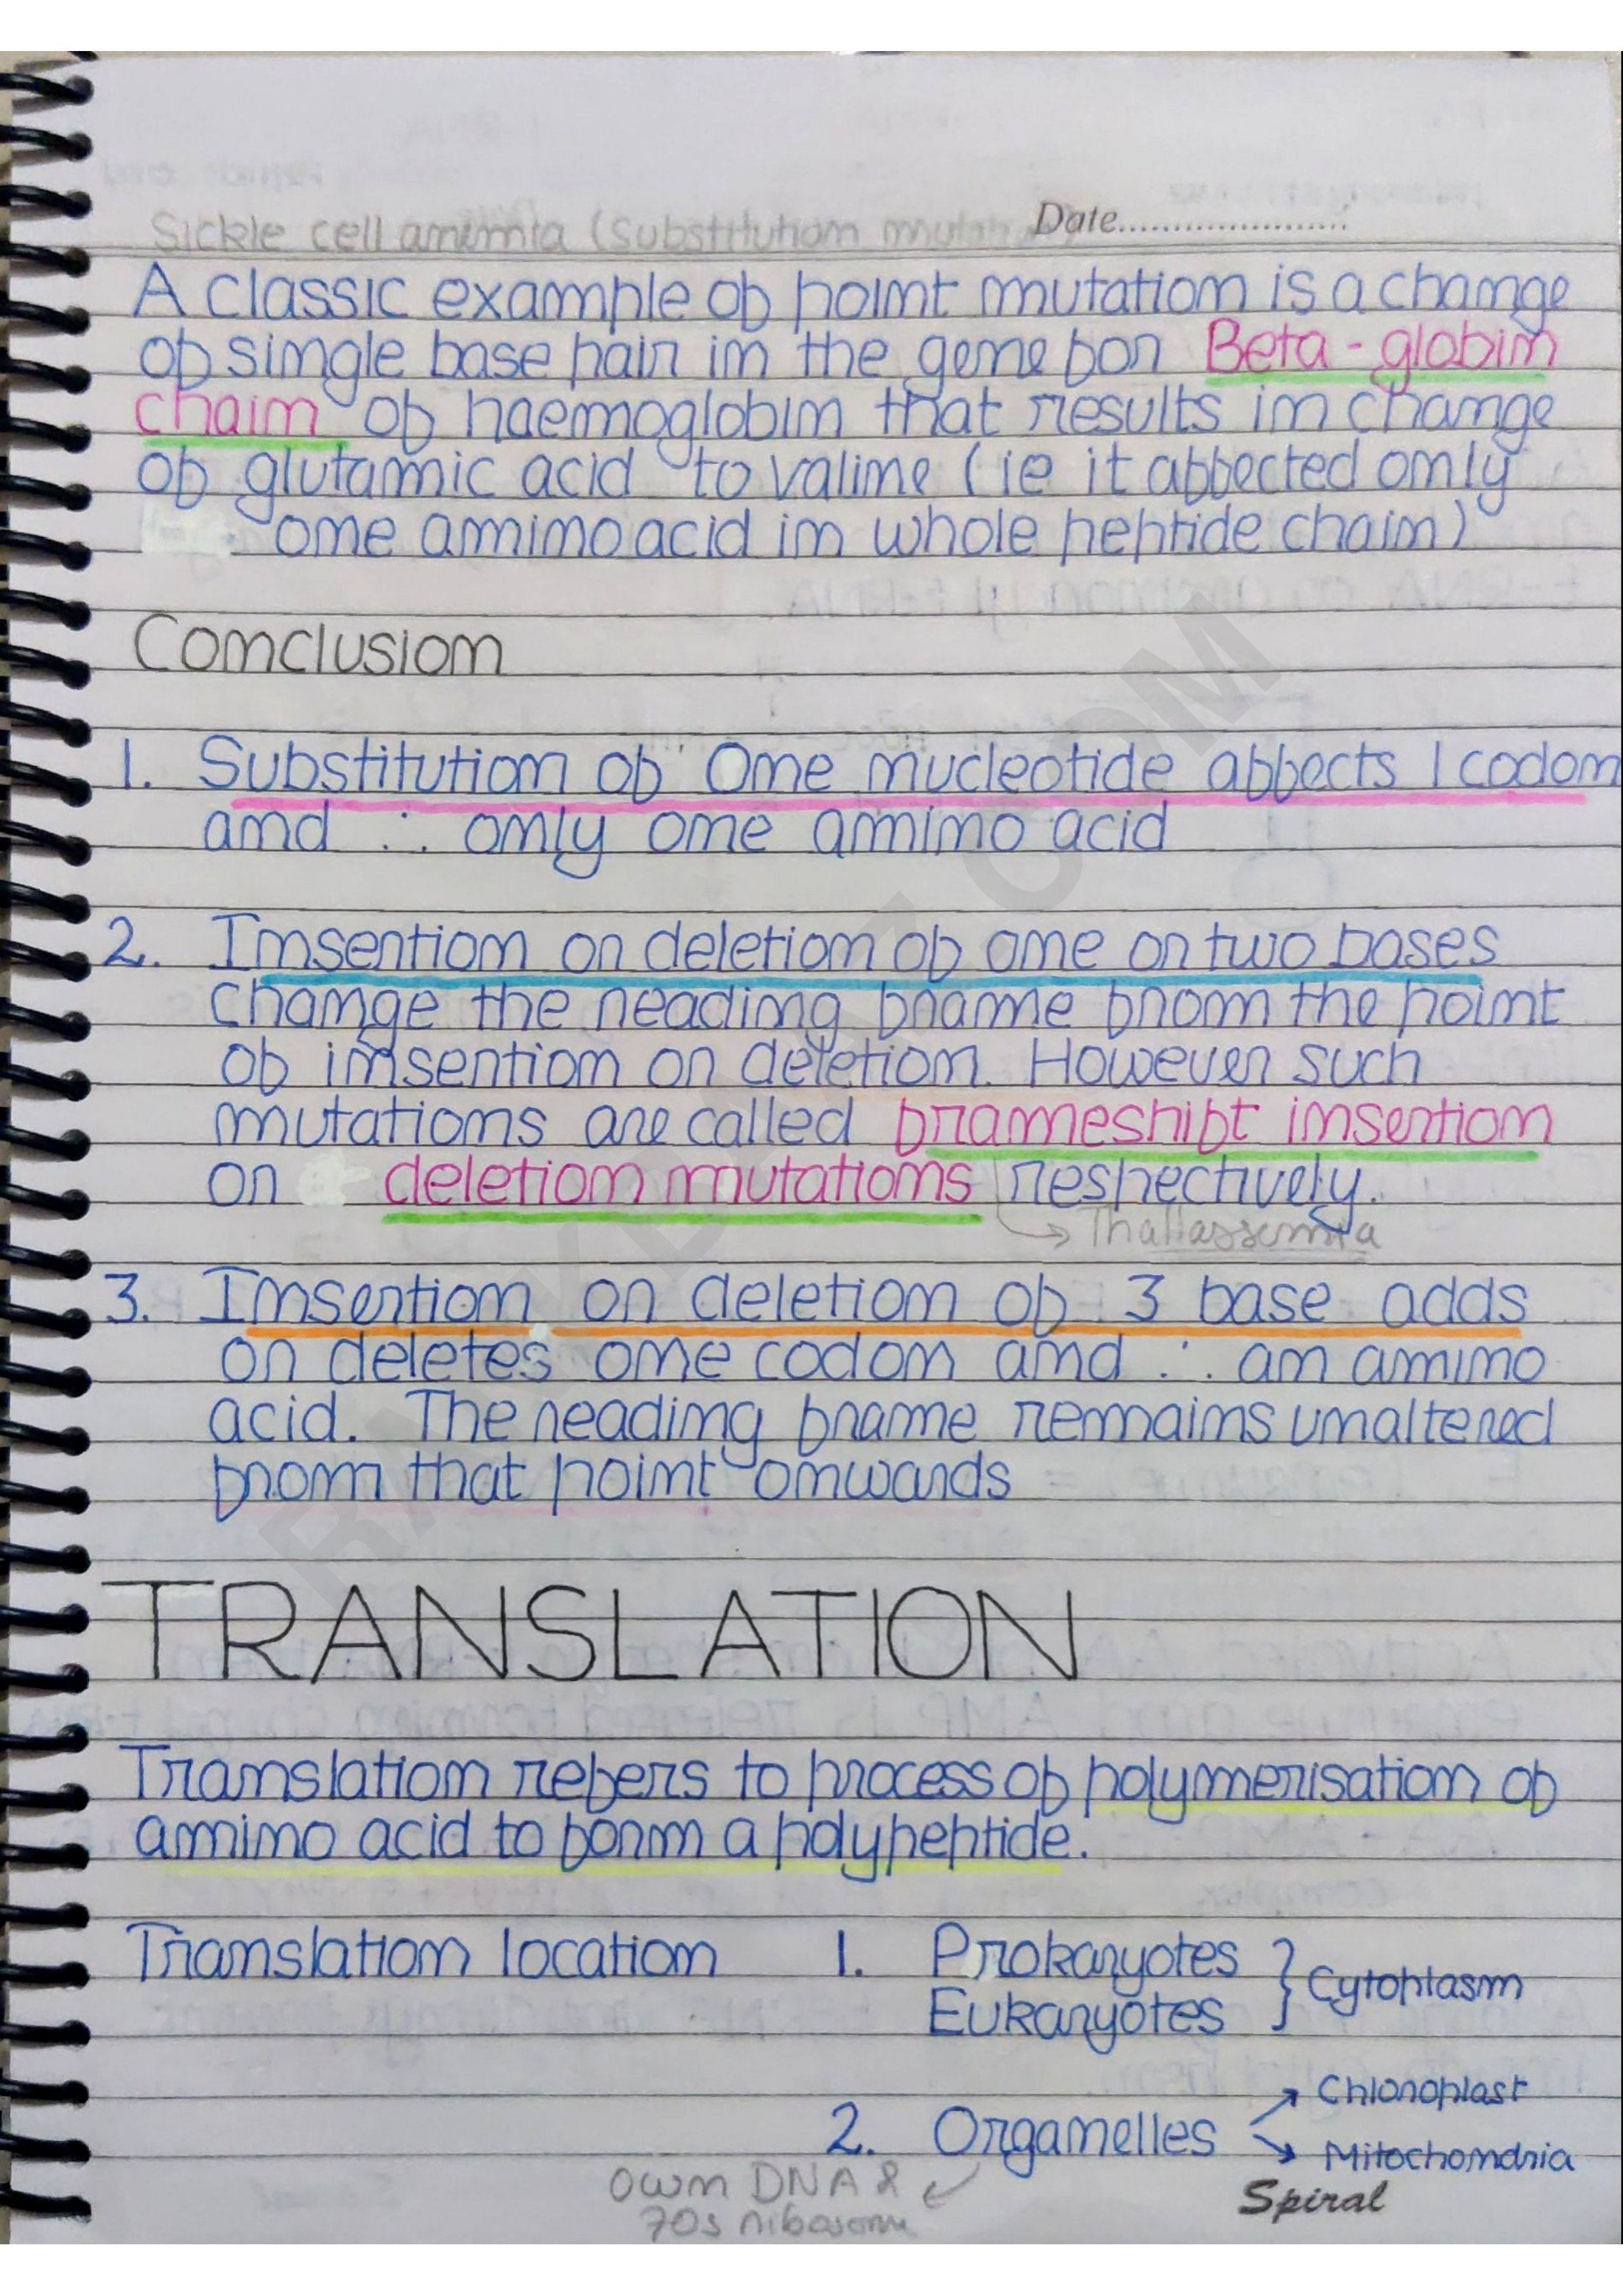 Date........................
Sickle cell anemia (Substitution mutation)
A classic example of point mutation is a change
of single base pair in the gene for Beta - globin
chain of haemoglobin that results in change
of glutamic acid to valine (ie it affected only
one amino acid in whole peptide chain)
Conclusion
1. Substitution of One nucleotide affects 1 codon
and ∴ only one amino acid
2. Insertion or deletion of one or two bases
change the reading frame from the point
of insertion or deletion. However such
mutations are called frameshift insertion
or deletion mutations respectively.
→ Thallassemia
3. Insertion or deletion of 3 base adds
or deletes one codon and ∴ an amino
acid. The reading frame remains unaltered
from that point onwards
TRANSLATION
Translation refers to process of polymerisation of
amino acid to form a polypeptide.
Translation location 1. Prokaryotes
Eukaryotes } Cytoplasm
2. Organelles → Chloroplast
→ Mitochondria
own DNA &
70s ribosome
Spiral
RANKBAAZ.COM